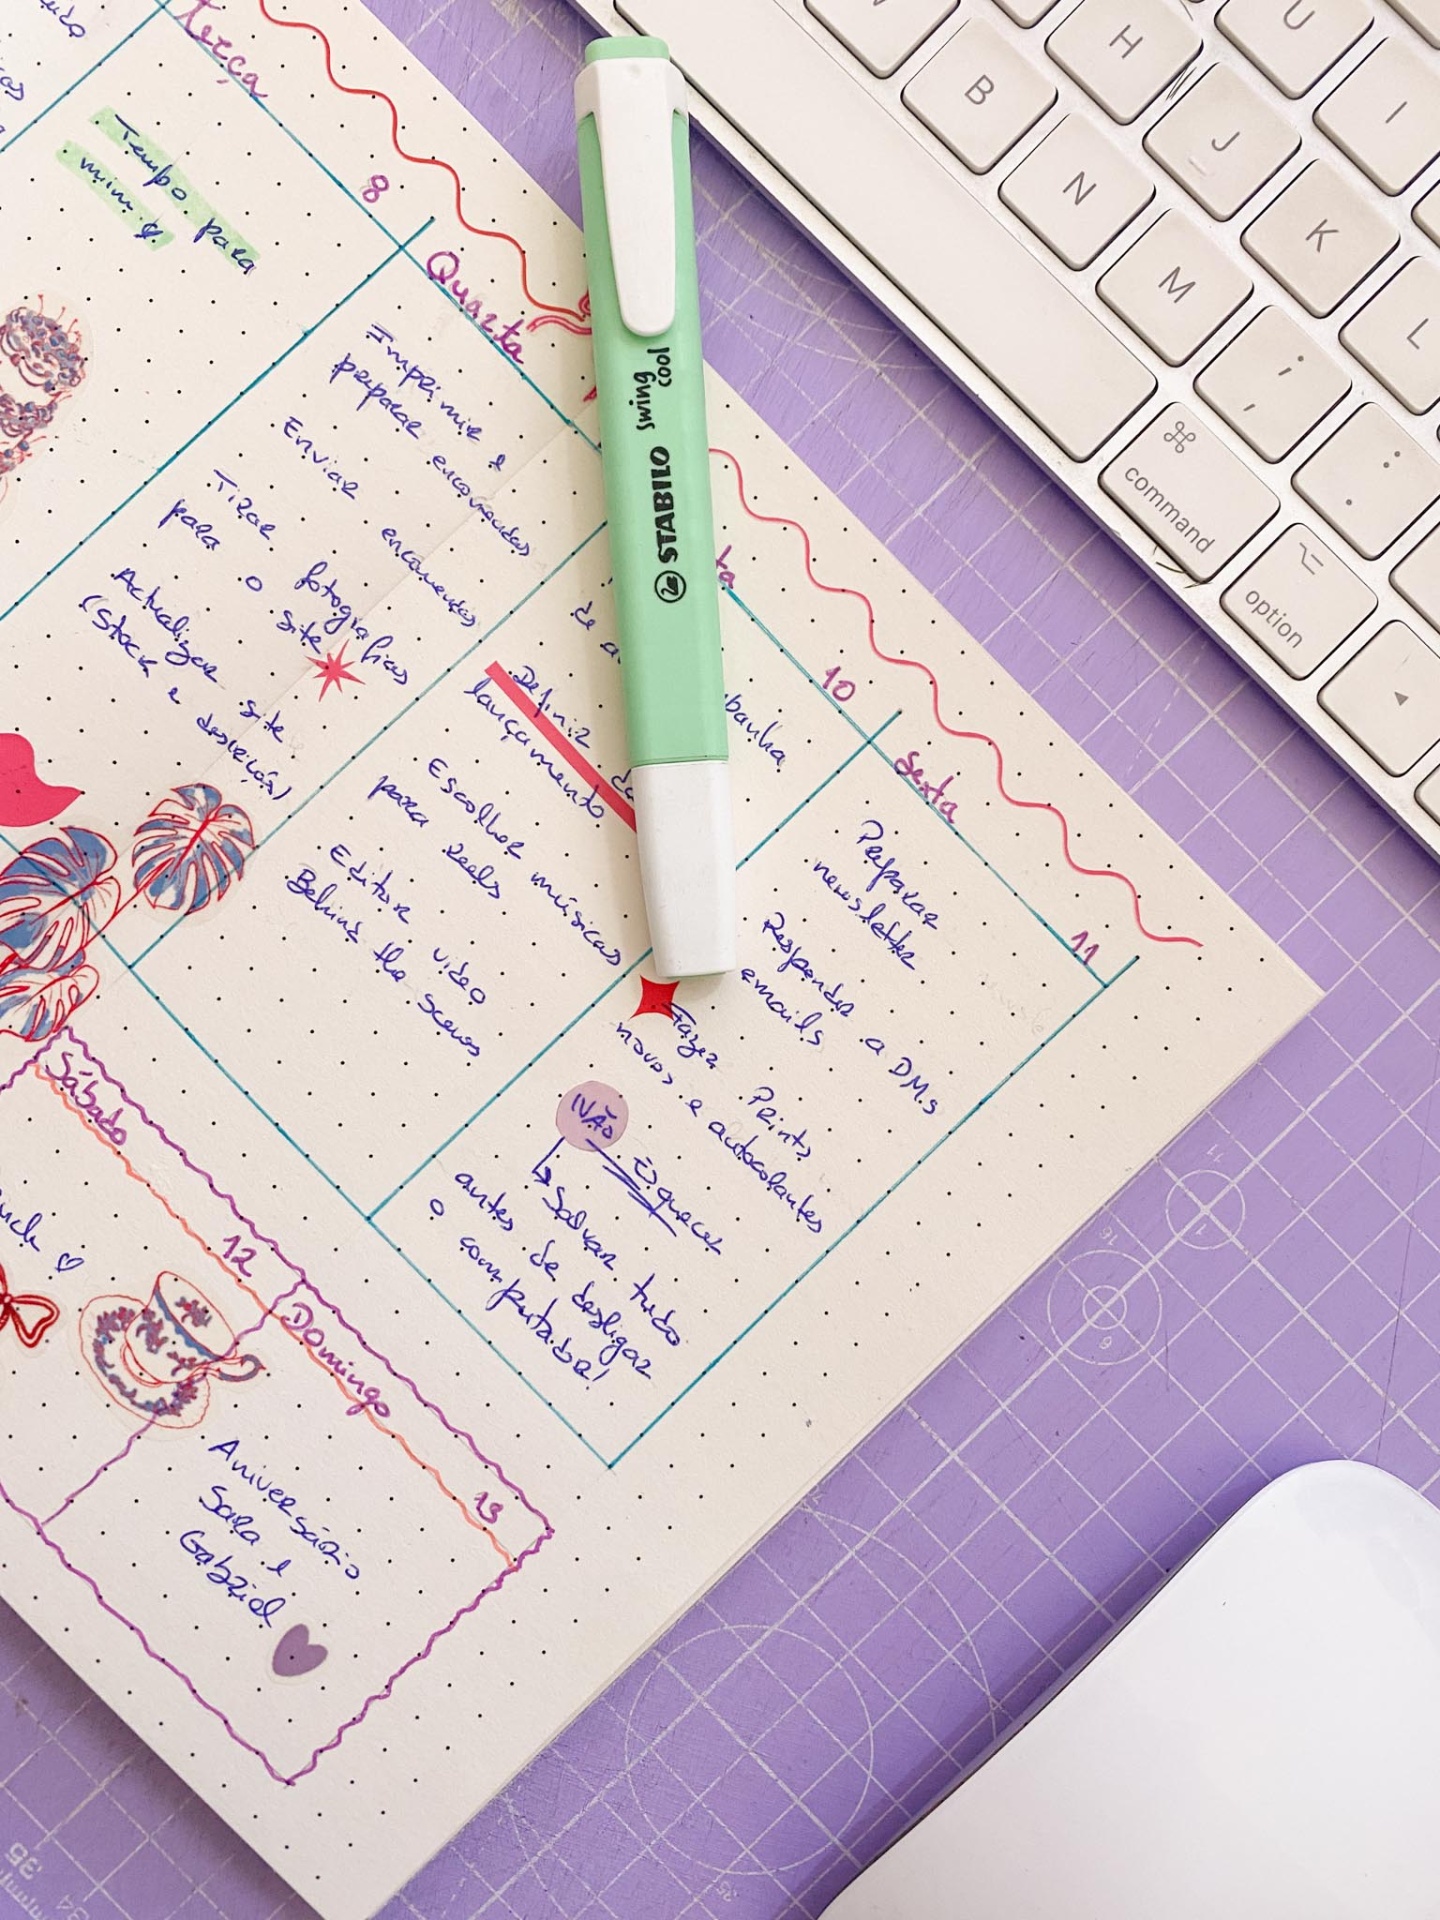 Terça
8
Tempo para
mim
Quarta
Imprimir e
preparar encomendas
Enviar encomendas
Tirar fotografias
para o site
Actualizar site
(Stock e descrição)
ta
10
de a
panha
Definir da
lançamento
Escolher músicas
para reels
Editar vídeo
Behind the scenes
Sexta
11
Preparar
newsletter
Responder a DMs
emails
Fazer Prints
novos e autocolantes
NÃO
Esquecer
Salvar tudo
antes de desligar
o computador!
Sábado
12
Domingo
13
Aniversário
Sara e
Gabriel
STABILO swing cool
B
H
U
N
J
I
M
K
L
; ,
: .
⌘
command
⌥
option
11
1
16
6
35
34